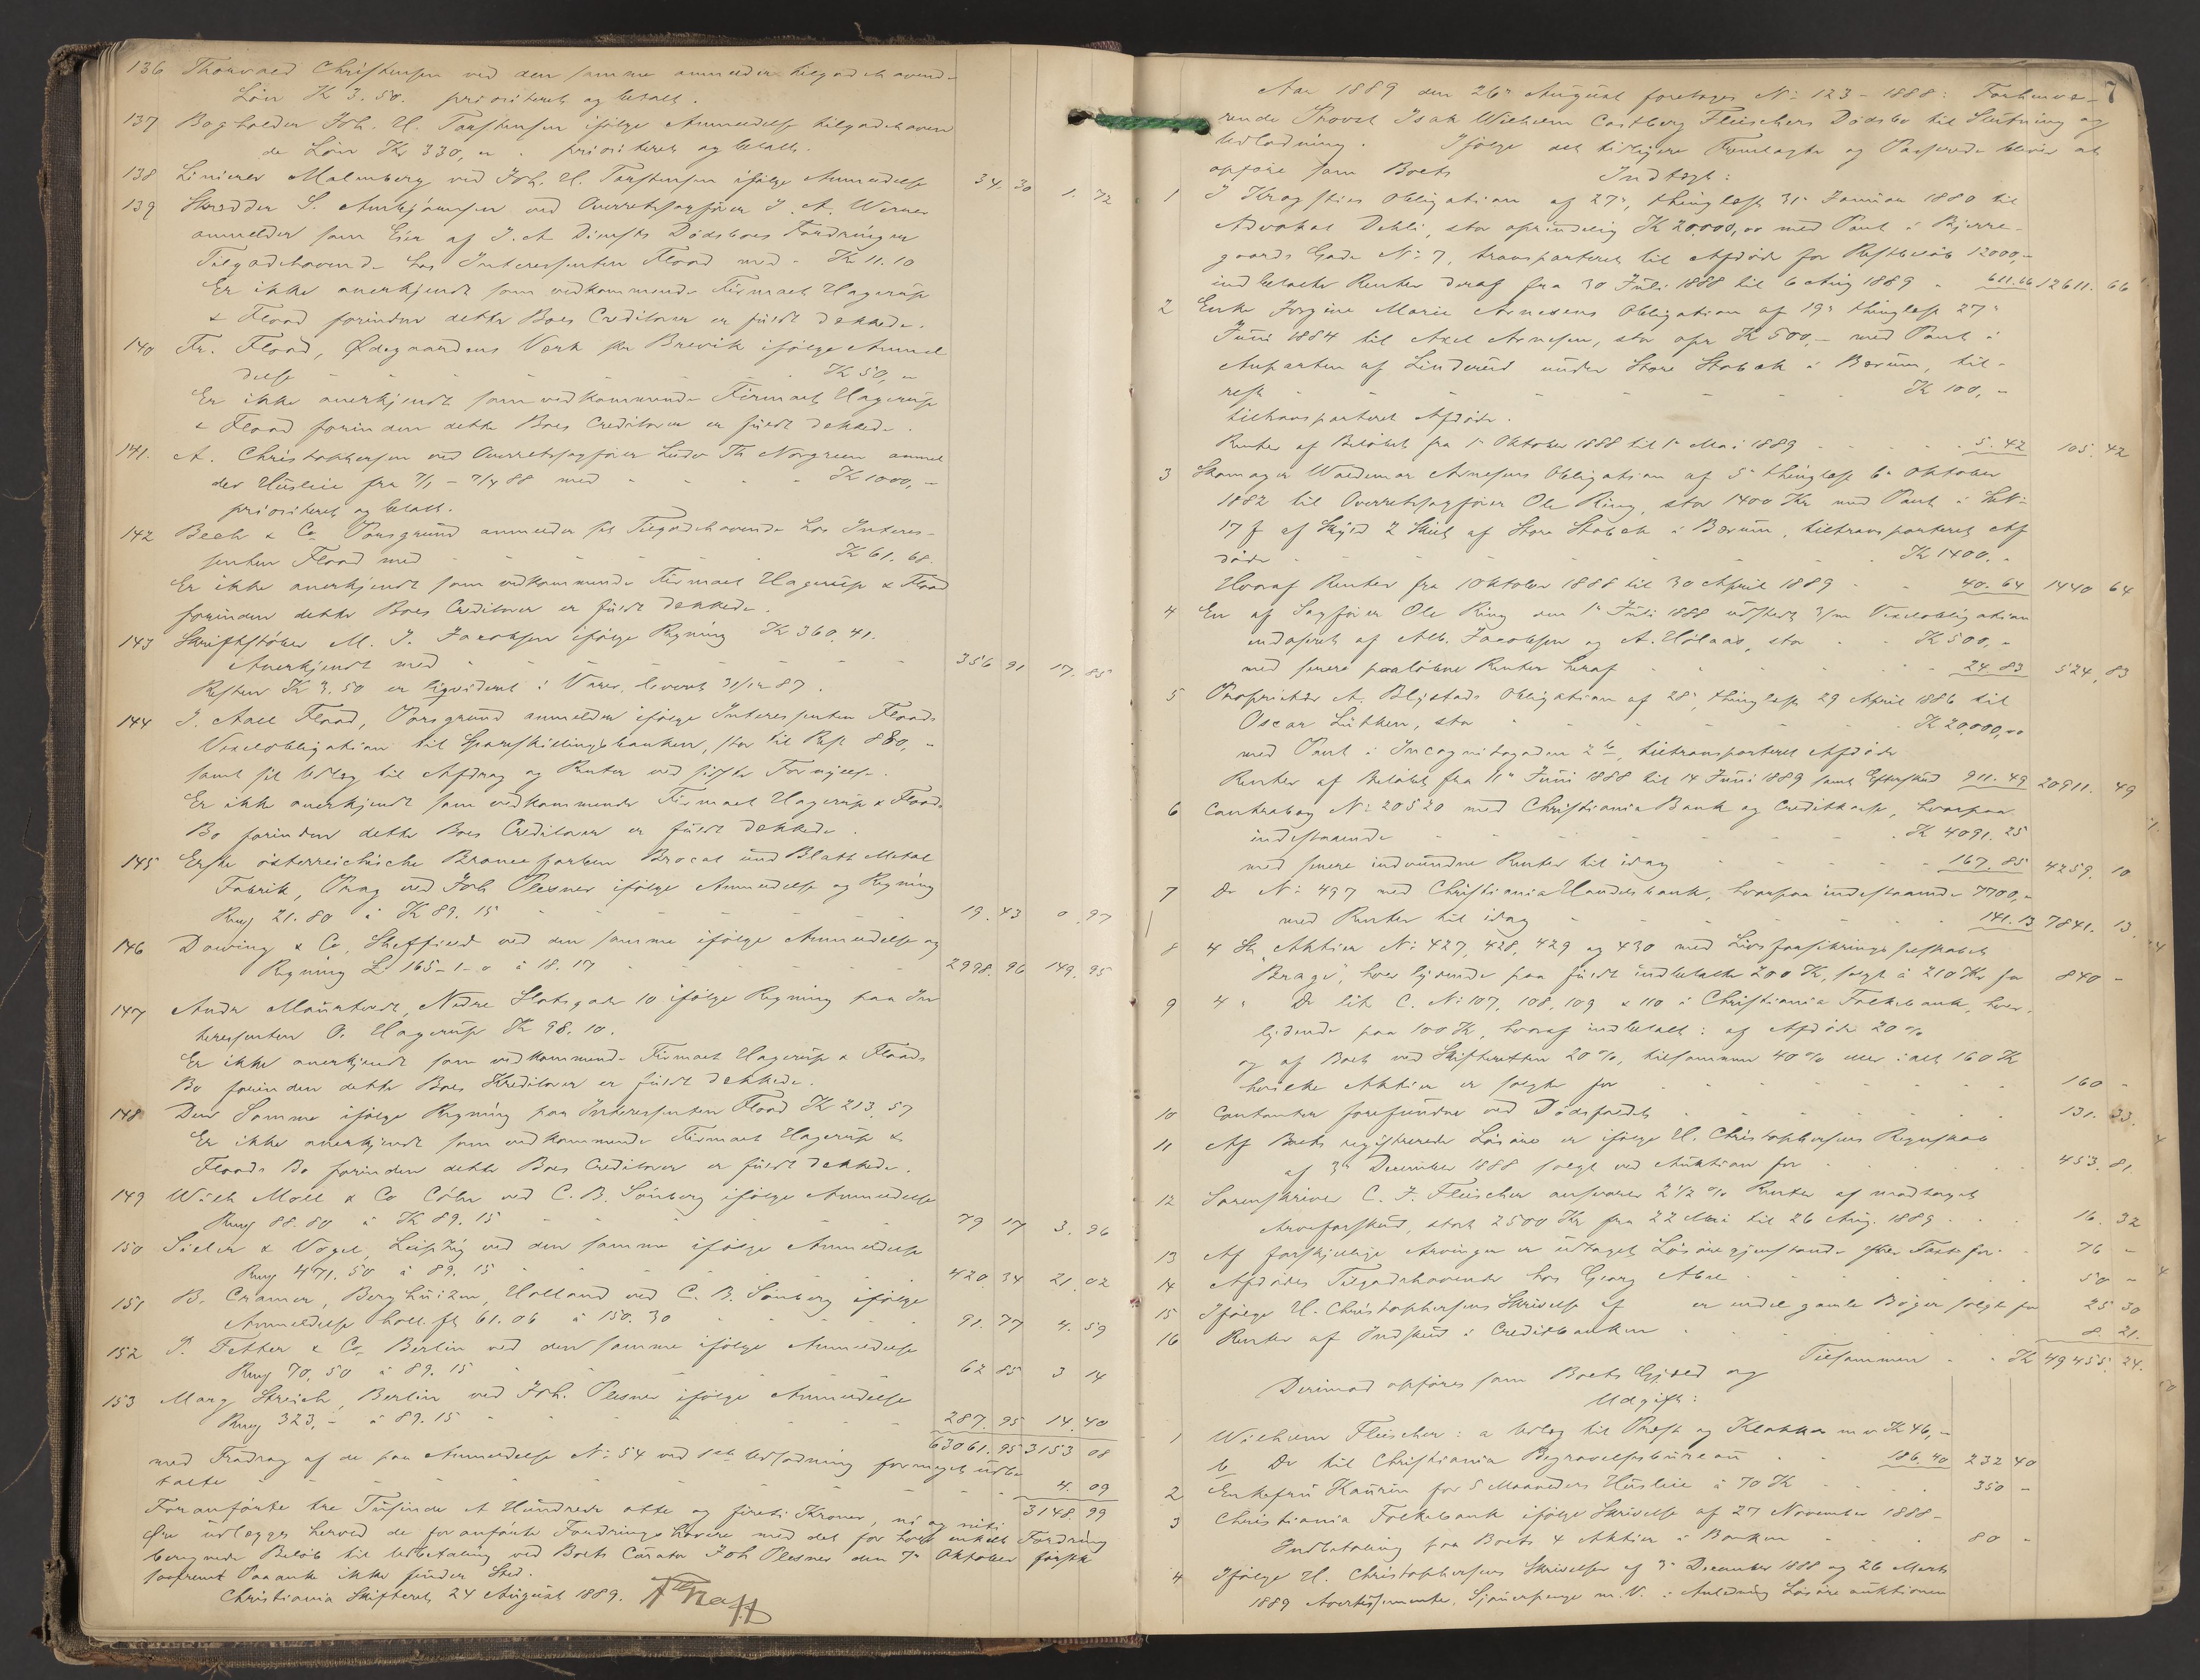 136 Thorvald Christensen ved den samme anmelder tilgodehavend-
Løn Kr 3.50. prioriteret og betalt.
137 Bogholder Joh. U. Torstensen ifølge Anmeldelse tilgodehaven
de Løn Kr 330, " . prioriteret og betalt.
138 Linierer Malmberg ved Joh. U. Torstensen ifølge Anmeldelse 34. 30 1. 72
139 Skrædder S. ved Overretssagfører J. A. Werner
anmelder som Eier af J. A. Dimsts Dødsboes Fordringer
Tilgodehavende hos Interessenten Flood med - Kr 11.10
Er ikke anerkjendt som vedkommende Firmaet Hagerup
& Flood forinden dette Boes Creditorer er fuldt dækkede.
140 Fr. Flood, Ødegaardens Værk pr Brevik ifølge Anmel
delse - - - - - Kr 50, "
Er ikke anerkjendt som vedkommende Firmaet Hagerup
& Flood forinden dette Boes Creditorer er fuldt dækkede.
141. A. Christophersen ved Overretssagfører Ludv Th Norgreen anmel
der Husleie fra 7/1 - 7/4 88 med - - - - Kr 1000, -
prioriteret og betalt.
142 Bech & Co Porsgrund anmelder sit Tilgodehavende hos Interes-
senten Flood med - - - - Kr 61. 68.
Er ikke anerkjendt som vedkommende Firmaet Hagerup & Flood
forinden dette Boes Creditorer er fuldt dækkede.
143 Skriftstøber M. J. Jacobsen ifølge Regning Kr 360. 41.
Anerkjendt med - - - - 356 91 17. 85
Resten Kr 3.50 er liqvideret i Varer, leveret 31/12 87.
144 J. Aall Flood, Porsgrund anmelder ifølge Interessenten Floods
Vexelobligation til Sparskillingsbanken, stor til Rest 880, -
samt sit Udlæg til Afdrag og Renter ved sidste Fornyelse.
Er ikke anerkjendt som vedkommende Firmaet Hagerup & Floods
Bo forinden dette Boes Creditorer er fuldt dækkede.
145 Erste österreichische Broncefarben Brocat und Blatt Metal
Fabrik, Prag ved Joh Plesner ifølge Anmeldelse og Regning
Rmg 21. 80 à Kr 89. 15 - - - - 19. 43 0. 97
146 Dowing & Co, Sheffield ved den samme ifølge Anmeldelse og
Regning £ 165-1-0 à 18. 17 - - - - 2998. 96 149. 95
147 Andr Mauritvedt, Nedre Slotsgate 10 ifølge Regning paa In
teressenten O. Hagerup Kr 98. 10.
Er ikke anerkjendt som vedkommende Firmaet Hagerup & Floods
Bo forinden dette Boes Kreditorer er fuldt dækkede.
148 Den Samme ifølge Regning paa Interessenten Flood Kr 213. 57
Er ikke anerkjendt som vedkommende Firmaet Hagerup &
Floods Bo forinden dette Boes Creditorer er fuldt dækkede.
149 Wilh Moll & Co Cöln ved C. B. Sönberg ifølge Anmeldelse
Rmg 88. 80 à Kr 89. 15 - - - - 79 17 3. 96
150 Sieler & Vogel, Leipzig ved den samme ifølge Anmeldelse
Rmg 471. 50 à 89. 15 - - - - 420 34 21 02
151 B. Cramer, Berghuizer, Holland ved C. B. Sönberg ifølge
Anmeldelse holl. fl 61. 06 à 150. 30 - - - - 91. 77 4. 59
152 P. Fetter & Co, Berlin ved den samme ifølge Anmeldelse
Rmg 70, 50 à 89. 15 - - - - 62 85 3 14
153 Marg Streich, Berlin ved Joh. Plesner ifølge Anmeldelse
Rmg 323, - à 89. 15 - - - - 287. 95 14. 40
63061. 95 3153 08
med Fradrag af de paa Anmeldelse No 54 ved 1ste Udlodning formeget udbe
talte - - - - 4. 09
3148. 99
Foranførte tre Tusinde et Hundrede otte og firti Kroner, ni og niti
Øre udlægges herved de foranførte Fordringshavere med det for hver enkelt Fordring
beregnede Beløb til Udbetaling ved Boets Curator Joh Plesner den 7de Oktober først
saafremt Paaanke ikke finder Sted.
Christiania Skifteret 24 August 1889.
7
Aar 1889 den 26de August foretages No 123 - 1888: Forhenvæ-
rende Provst Isak Wilhelm Castberg Fleischers Dødsbo til Slutning og
Udlodning. Ifølge det tidligere Fremlagte og Passerede bliver at
opføre som Boets Indtægt:
1 J Kragsties Obligation af 27de, thinglæst 31te Januar 1880 til
Advokat Dehli, stor oprindelig Kr 20,000,00 med Pant i Bjerre-
gaards Gade No 7, transporteret til Afdøde for Restbeløb 12000, -
indbetalte Renter deraf fra 30 Juli 1888 til 6 Aug 1889 - 611. 66 12611. 66
2 Enke Jorgine Marie Arnesens Obligation af 19de thinglæst 27de
Juni 1884 til Axel Arnesen, stor opr Kr 500, - med Pant i
Anparten af Linderud under Store Stabæk i Bærum, til-
rest - - - - Kr 100, -
tiltransporteret Afdøde.
Renter af Beløbet fra 1te Oktober 1888 til 1te Mai 1889 - - - 5. 42 105. 42
3 Skomager Waldemar Arnesens Obligation af 5te thinglæst 6te Oktober
1882 til Overretssagfører Ole Ring, stor 1400 Kr med Pant i
17 f af Skyld 2 Skill af Store Stabæk i Bærum, tiltransporteret Af
døde - - - - Kr 1400, -
Hvoraf Renter fra 1 Oktober 1888 til 30 April 1889 - - 40. 64 1440 64
4 En af Sagfører Ole Ring den 1te Juli 1888 udstedt 3/m Vexelobligation
endosseret af Alb. Jacobsen og A. Hólaas, stor - - Kr 500, -
med senere paaløbne Renter heraf - - - - 24 83 524, 83
5 Proprietær A. Blystads Obligation af 28de, thinglæst 29 April 1886 til
Oscar Lütken, stor - - - - Kr 20,000,00
med Pant i Incognitogaden 2 b, tiltransporteret Afdøde
Renter af Beløbet fra 11te Juni 1888 til 14 Juni 1889 samt Efterskud 911. 49 20911. 49
6 Contrabog No 20520 med Christiania Bank og Creditkasse, hvorpaa
indestaaende - - - - Kr 4091. 25
med senere indvundne Renter til idag - - - - 167. 85 4259. 10
7 Do No 497 med Christiania Handelsbank, hvorpaa indestaaende 7700, -
med Renter til idag - - - - 141. 13 7841. 13.
8 4 St. Aktier No 427, 428, 429 og 430 med Livsforsikringsselskabet
"Brage", hver lydende paa fuldt indbetalte 200 Kr, solgt à 210 Kr for 840 -
9 4 " Do lit C. No 107, 108, 109 & 110 i Christiania Folkebank, hver
lydende paa 100 Kr, hvoraf indbetalt: af Afdøde 20 %
og af Boet ved Skifteretten 20 %, tilsammen 40 % eller ialt 160 Kr
hvilke Aktier er solgte for - - - - 160 -
10 Contanter forefundne ved Dødsfaldet - - - - 131. 33.
11 Af Boets registrerede Løsøre er ifølge U. Christophersens Regnskab
af 3de December 1888 solgt ved Auktion for - - - - 453. 81.
12 Sorenskriver C. J. Fleischer ansvarer 2 1/2 % Renter af modtaget
Arveforskud, stort 2500 Kr fra 22 Mai til 26 Aug. 1889 - - - 16. 32
13 Af forskjellige Arvinger er udtaget Løsøregjenstande efter Taxt for 76 -
14 Afdødes Tilgodehavende hos Georg Abel - - - - 50 -
15 Ifølge U. Christophersens Skrivelse af er endel gamle Bøger solgt for 25 30
16 Renter af Indskud i Creditbanken - - - - 8. 21.
Tilsammen - - Kr 49455. 24.
Derimod opføres som Boets Gjæld og
Udgift:
1 Wilhelm Fleischer: a Udlæg til Præst og Klokker m. v. Kr 46, -
b Do til Christiania Begravelsesbureau - - 186. 40 232 40
2 Enkefru Kaurin for 5 Maaneders Husleie à 70 Kr - - - 350 -
3 Christiania Folkebank ifølge Skrivelse af 27 November 1888 -
Indbetaling paa Boets 4 Aktier i Banken - - - - 80 -
4 Ifølge U. Christophersens Skrivelser af 3de December 1888 og 26 Marts
1889 Avertissementer, Sjauerpenge m. V. i Anledning Løsøreauktionen